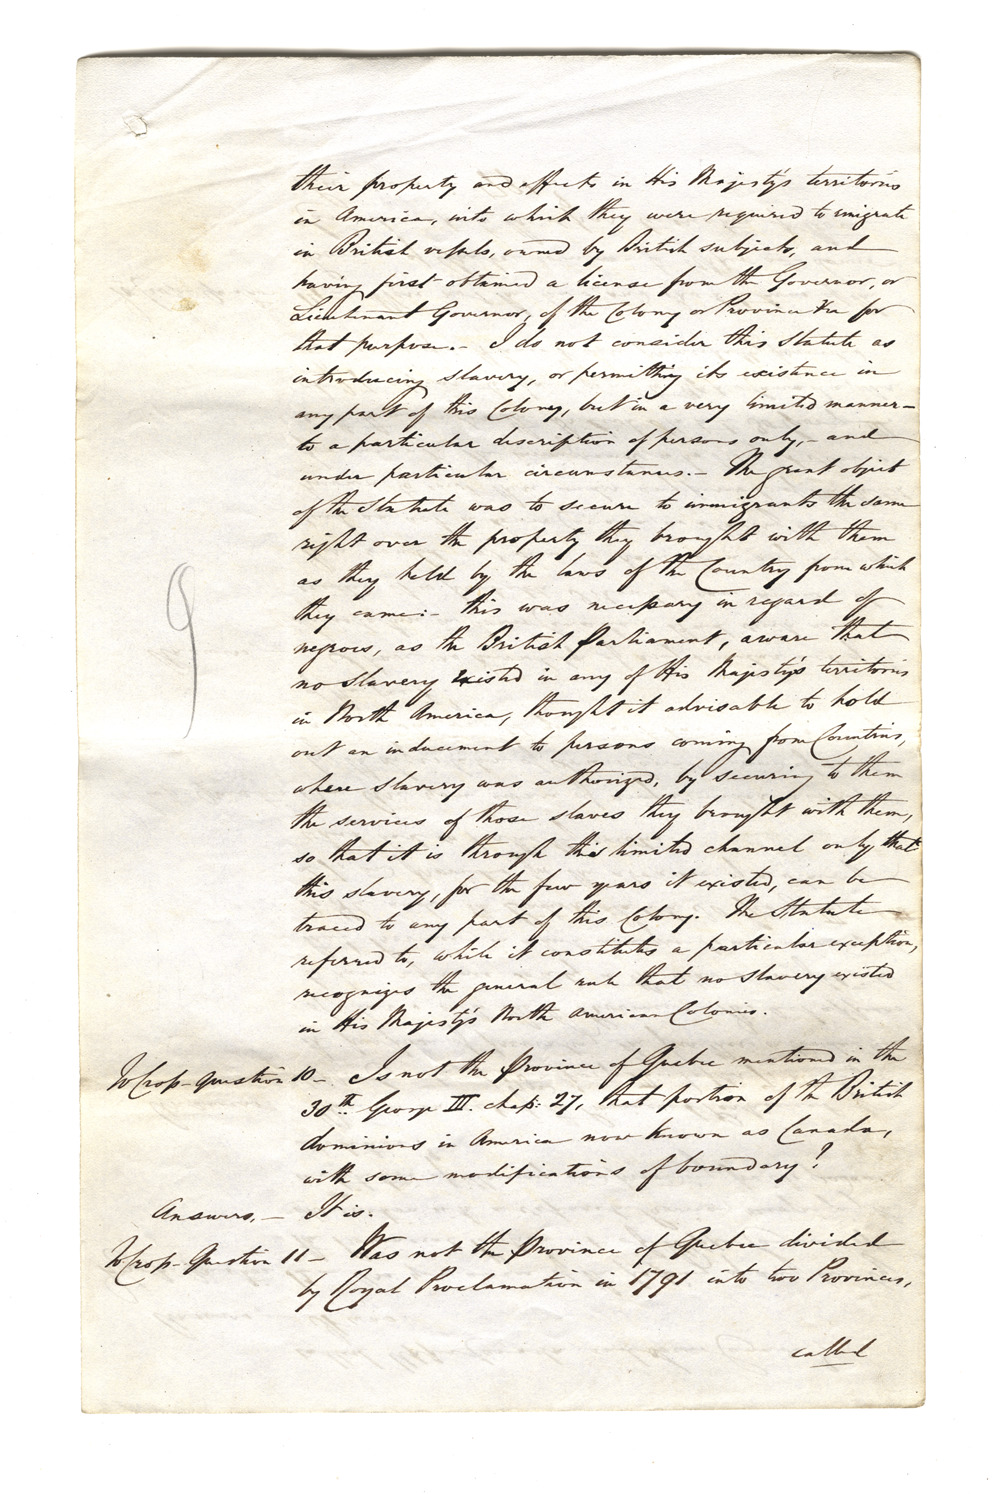 their property and effects in His Majesty's territories
in America, into which they were required to emigrate
in British vessels, owned by British subjects, and
having first obtained a license from the Governor, or
Lieutenant Governor, of the Colony or Province &c for
that purpose. - I do not consider this Statute as
introducing slavery, or permitting its existence in
any part of this Colony, but in a very limited manner -
to a particular description of persons only, - and
under particular circumstances. - The great object
of the Statute was to secure to immigrants the same
right over the property they brought with them
as they held by the laws of the Country from which
they came: - this was necessary in regard of
negroes, as the British Parliament, aware that
no slavery existed in any of His Majesty's territories
in North America, thought it advisable to hold
out an inducement to persons coming from Countries,
where slavery was authorized, by securing to them
the services of those slaves they brought with them,
so that it is through this limited channel only that
this slavery, for the few years it existed, can be
traced to any part of this Colony. The Statute
referred to, while it constitutes a particular exception,
recognizes the general rule that no slavery existed
in His Majesty's North American Colonies.
To Cross-question 10 - Is not the Province of Quebec mentioned in the
30th George III. chap: 27, that portion of the British
dominions in America now known as Canada,
with some modifications of boundary?
Answers. - It is.
To Cross-Question 11 - Was not the Province of Quebec divided
by Royal Proclamation in 1791 into two Provinces,
called
9